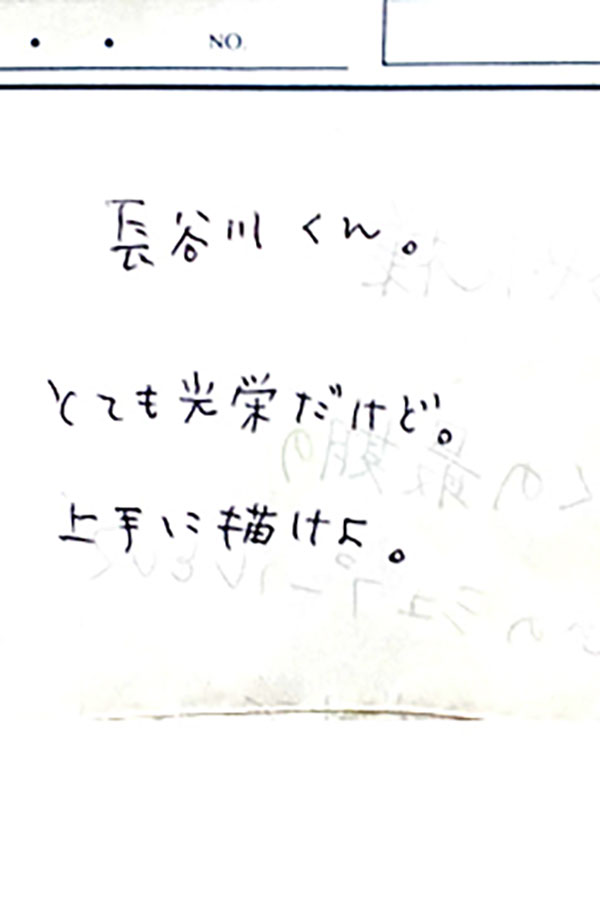 NO.
長谷川くん。
とても光栄だけど。
上手に描けよ。